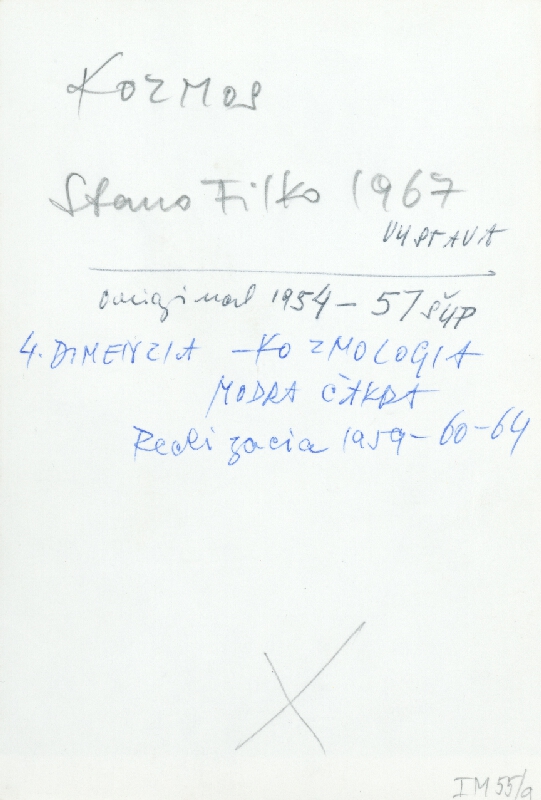 KOZMOS
Stano Filko 1967
VYSTAVA
original 1954 - 57 ŠUP
4. DIMENZIA - KOZMOLOGIA
MODRA ČAKRA
Realizacia 1959 - 60 - 64
IM 55/a